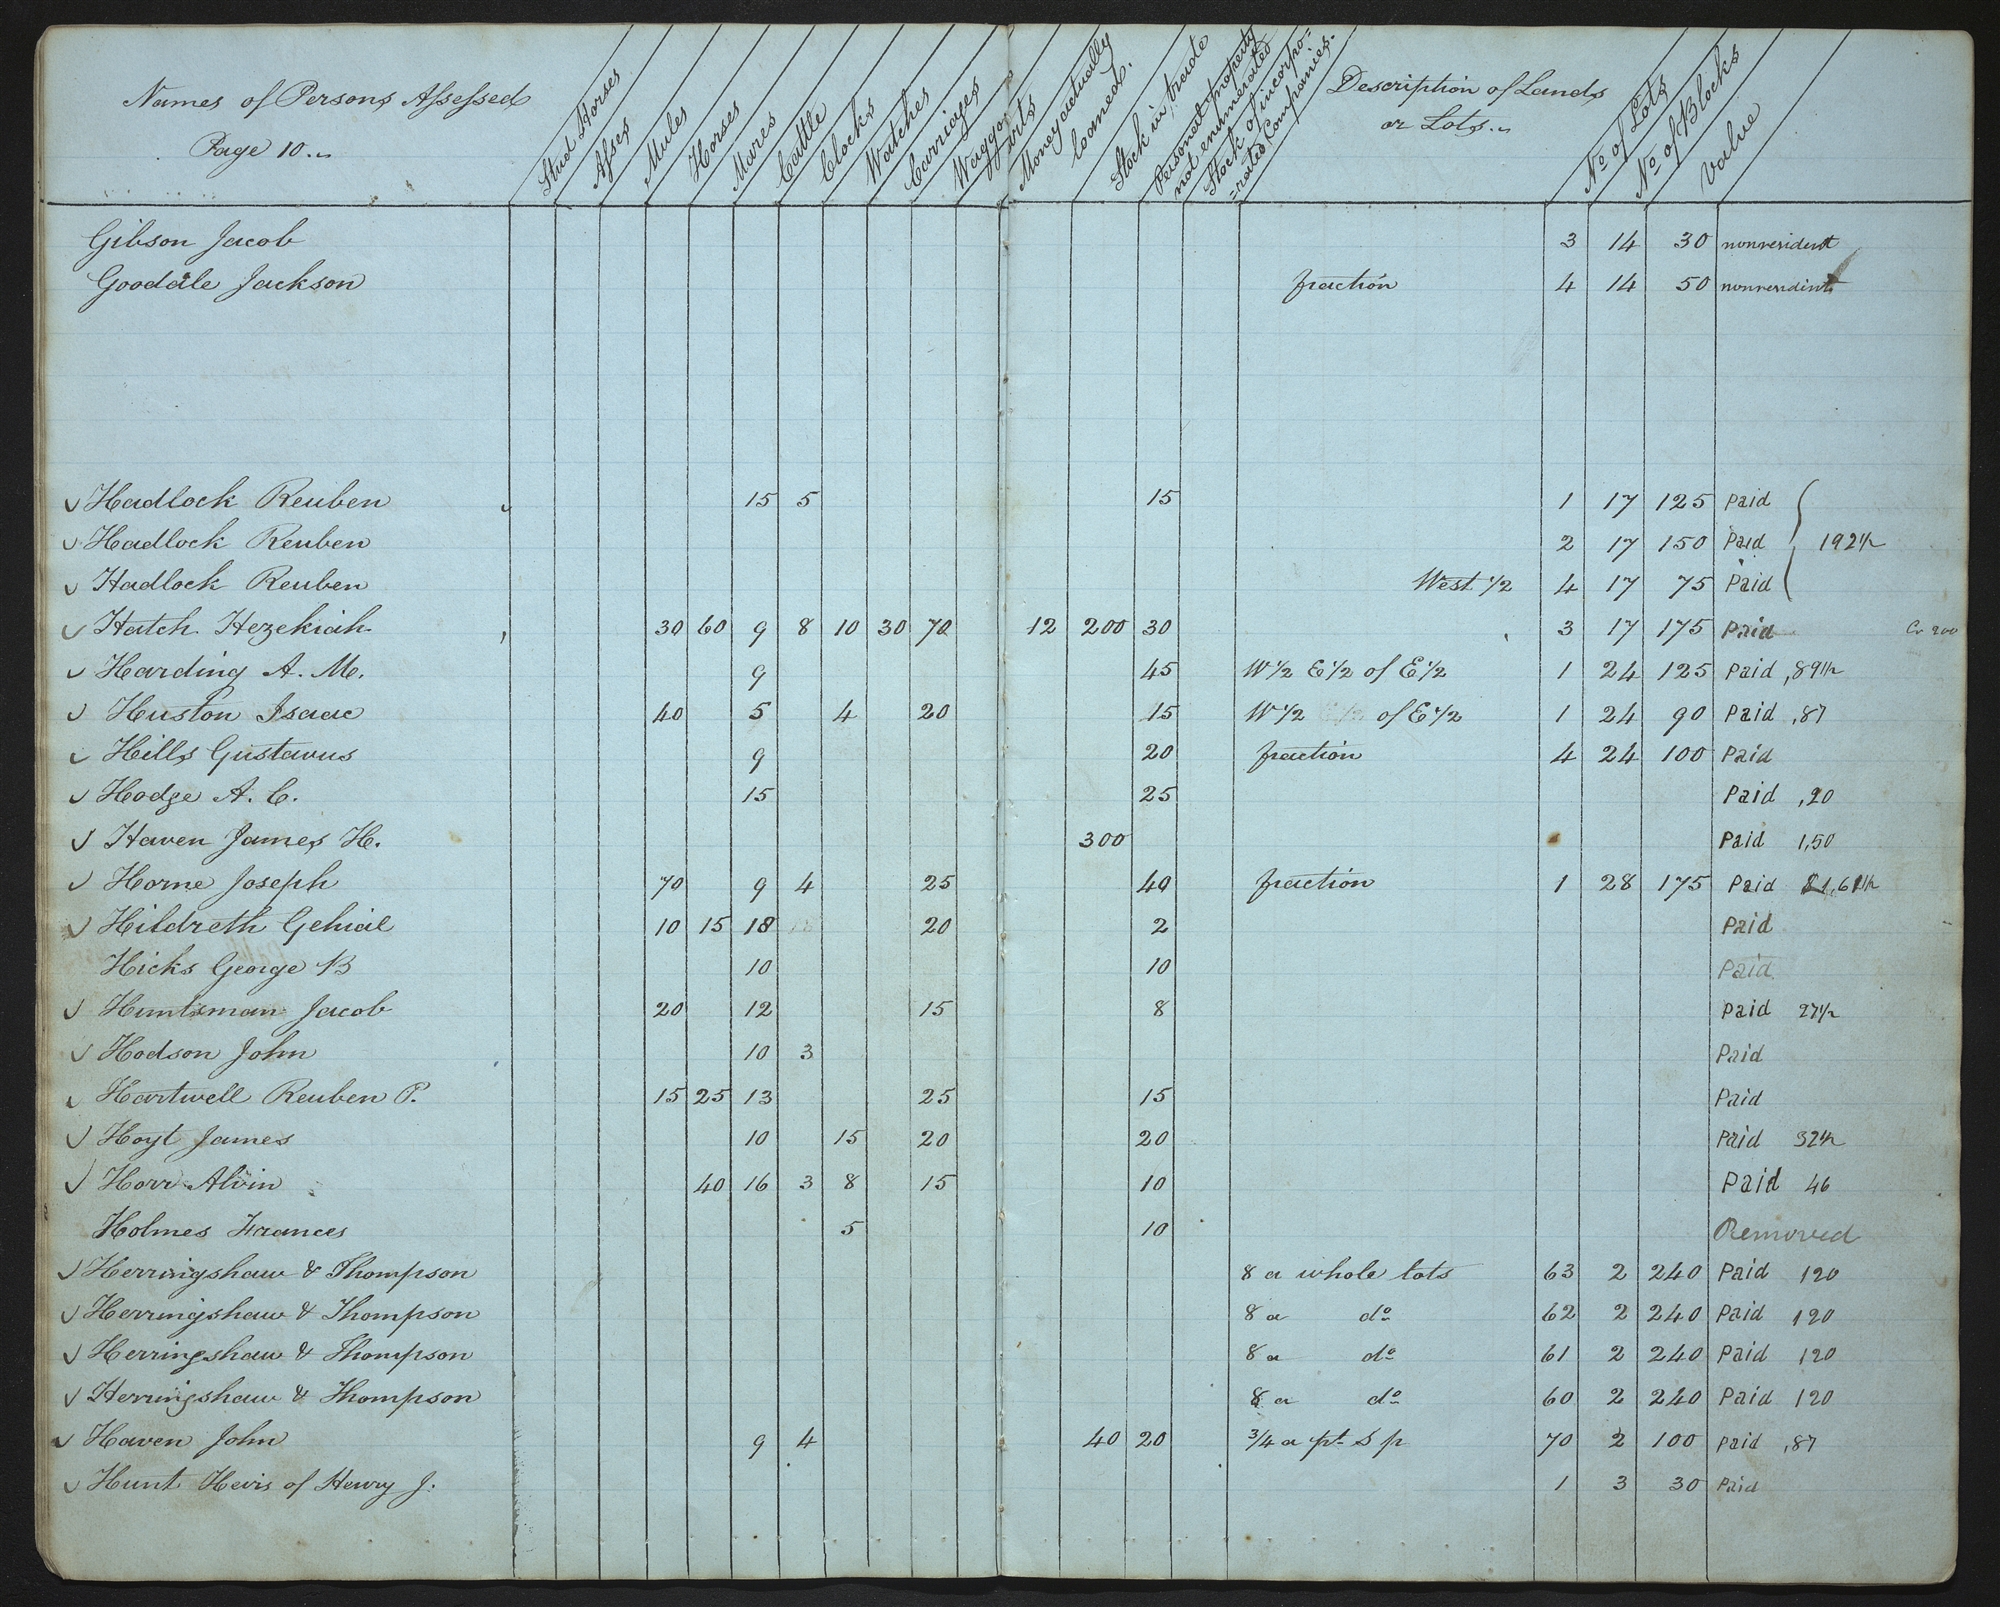 Names of Persons Assessed
Page 10.
Stud Horses
Asses
Mules
Horses
Mares
Cattle
Clocks
Watches
Carriages
Money actually loaned.
Stock in trade
Personal property not enumerated
Stock of incorpo=
=rated Companies.
Description of Lands
or Lots.
No of Lots
No of Blocks
Value
Gibson Jacob 3 14 30 nonresident
Goodale Jackson fraction 4 14 50 nonresident
Hadlock Reuben 15 5 15 1 17 125 Paid
Hadlock Reuben 2 17 150 Paid 192½
Hadlock Reuben West 1/2 4 17 75 Paid
Hatch Hezekiah 30 60 9 8 10 30 70 12 200 30 3 17 175 Paid Cr 200
Harding A. M. 9 45 W 1/2 E 1/2 of E 1/2 1 24 125 Paid ,89½
Huston Isaac 40 5 4 20 15 W 1/2 of E 1/2 1 24 90 Paid ,87
Hills Gustavus 9 20 fraction 4 24 100 Paid
Hodge A. C. 15 25 Paid ,20
Haven James H. 300 Paid 1,50
Horne Joseph 70 9 4 25 40 fraction 1 28 175 Paid
Hildreth Gehial 10 15 18 20 2 Paid
Hicks George B 10 10 Paid
Huntsman Jacob 20 12 15 8 Paid 27½
Hodson John 10 3 Paid
Hartwell Reuben P. 15 25 13 25 15 Paid
Hoyt James 10 15 20 20 Paid 32½
Horr Alvin 40 16 3 8 15 10 Paid 46
Holmes Frances 5 10 Removed
Herringshaw & Thompson 8 a whole lots 63 2 240 Paid 120
Herringshaw & Thompson 8 a do 62 2 240 Paid 120
Herringshaw & Thompson 8 a do 61 2 240 Paid 120
Herringshaw & Thompson 8 a do 60 2 240 Paid 120
Haven John 9 4 40 20 3/4 a pt S p 70 2 100 Paid ,87
Hunt Heirs of Henry J. 1 3 30 Paid